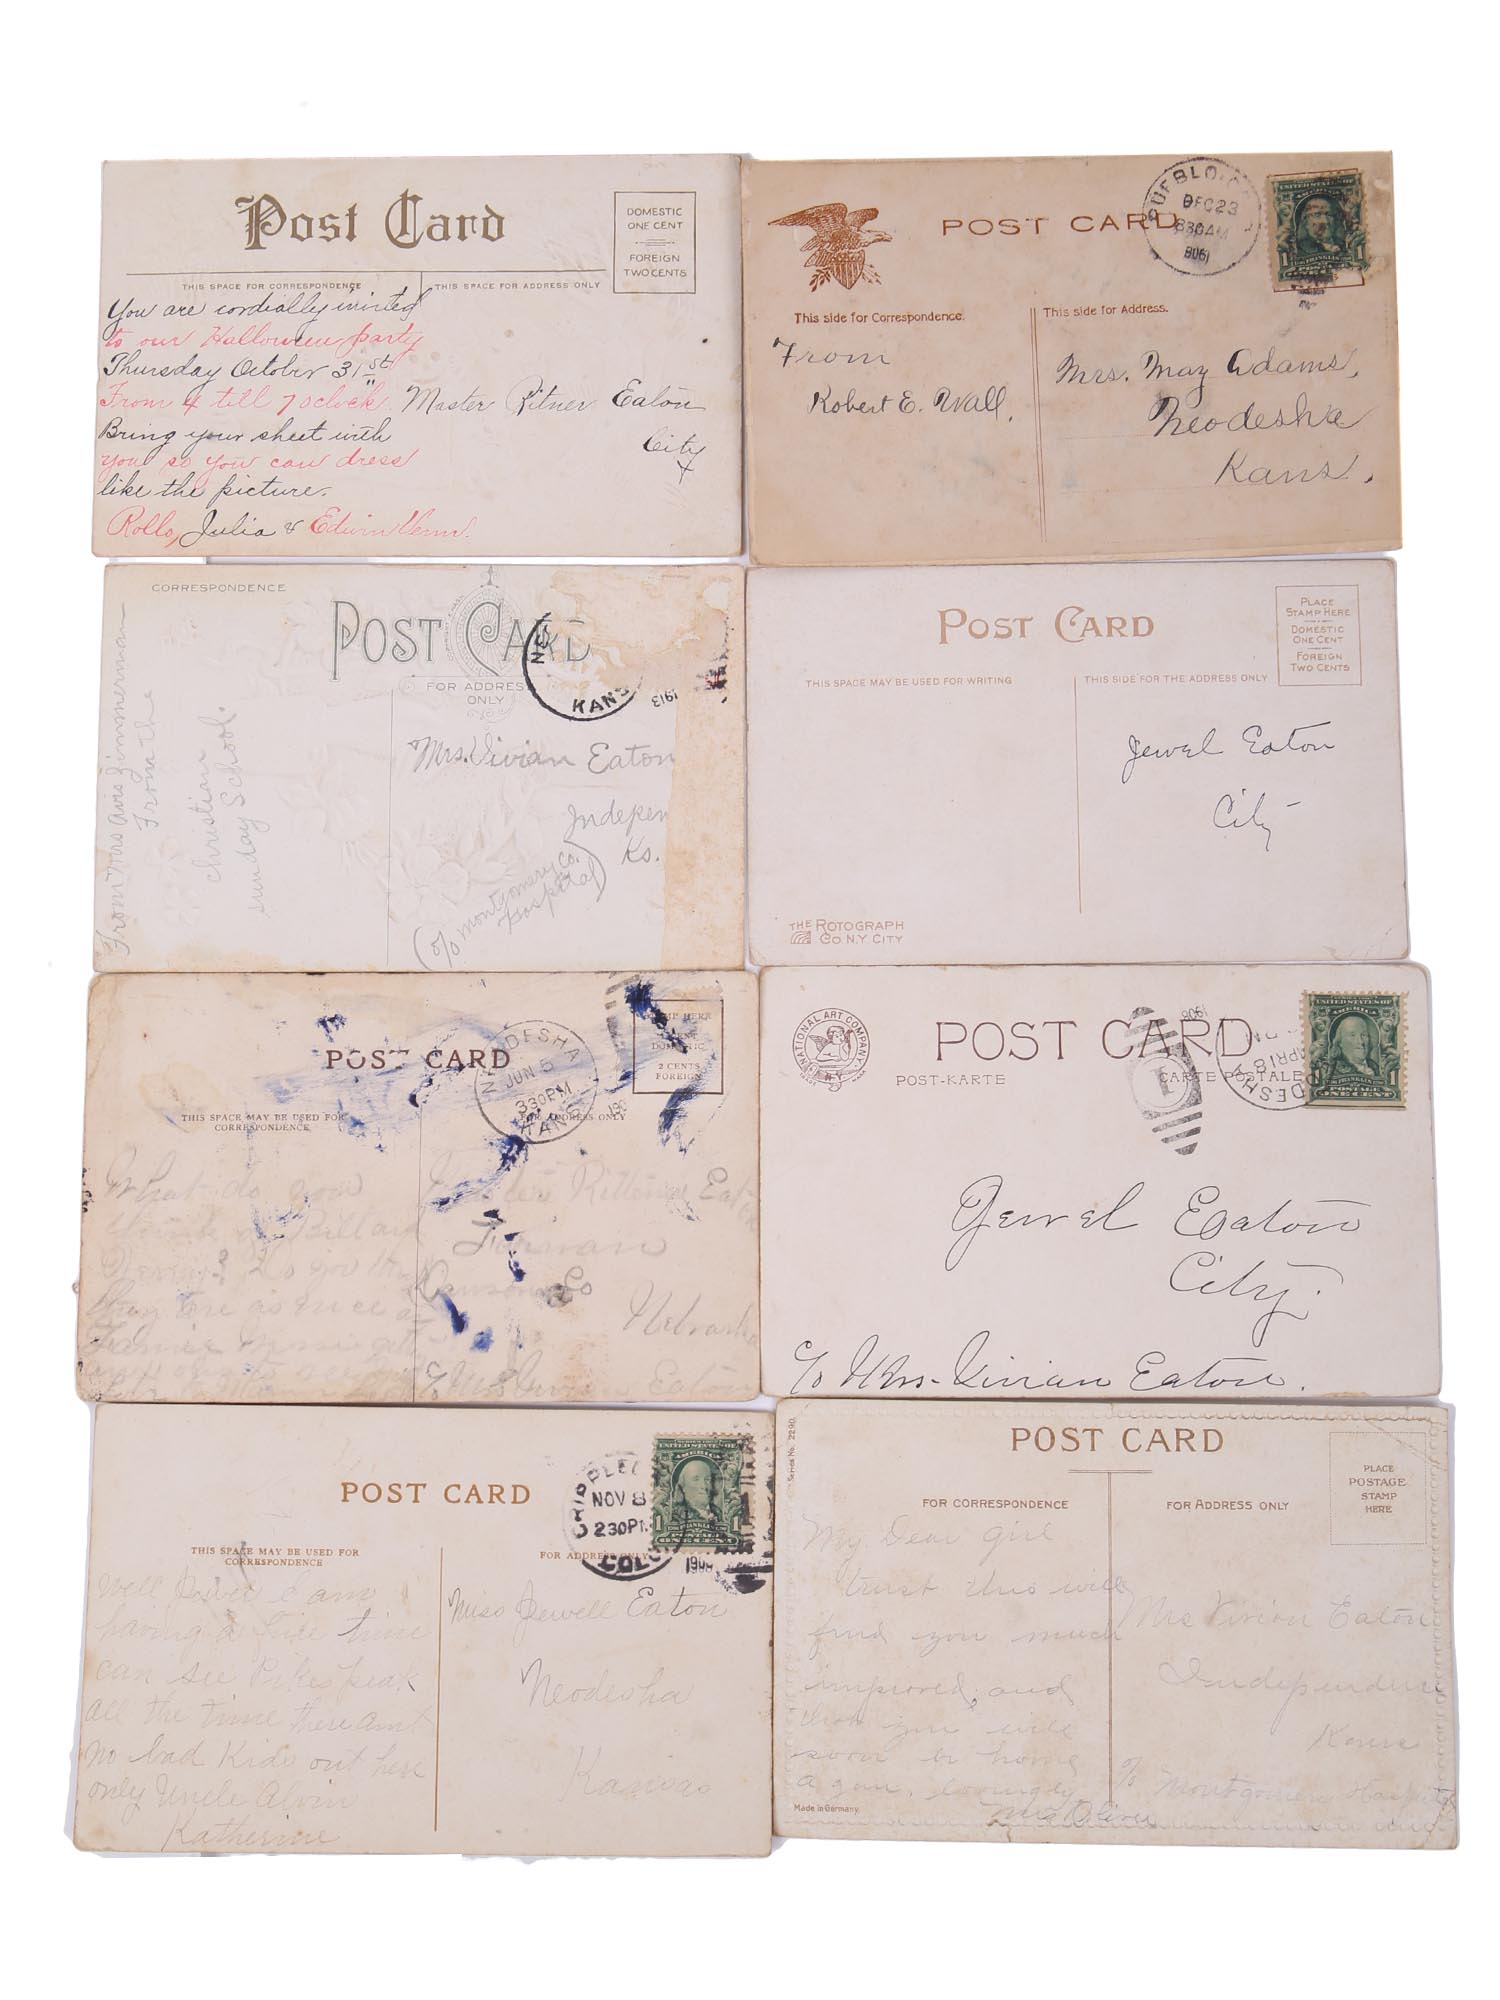 Post Card
DOMESTIC
ONE CENT
FOREIGN
TWO CENTS
THIS SPACE FOR CORRESPONDENCE
THIS SPACE FOR ADDRESS ONLY
You are cordially invited
to our Halloween party
Thursday October 31st
From 4 till 7 oclock.
Bring your sheet with
you so you can dress
like the picture.
Rollo, Julia & Edwin Venn.
Master Ritner Eaton
City
POST CARD
PUEBLO, CO
DEC 23
830 AM
1906
UNITED STATES OF
AMERICA
This side for Correspondence.
This side for Address.
From
Robert E. Wall.
Mrs. May Adams,
Neodesha
Kans.
CORRESPONDENCE
POST CARD
FOR ADDRESS
ONLY
NEO
KANS
1913
From Mrs Avis Zimmerman
From the
Christian
Sunday School.
Mrs. Vivian Eaton
Indepen
Ks.
(c/o Montgomery Co.
Hospital)
POST CARD
PLACE
STAMP HERE
DOMESTIC
ONE CENT
FOREIGN
TWO CENTS
THIS SPACE MAY BE USED FOR WRITING
THIS SIDE FOR THE ADDRESS ONLY
Jewel Eaton
City
THE ROTOGRAPH
CO N.Y. CITY
POST CARD
HERE
DOMESTIC
2 CENTS
FOREIGN
NEODESHA
JUN 5
330 PM
KANS
190
THIS SPACE MAY BE USED FOR
CORRESPONDENCE
FOR ADDRESS ONLY
What do you
think of Billard
as nice
Master Eaton
Farnam
Dawson Co
Nebraska
c/o Mrs Vivian Eaton
INTERNATIONAL ART COMPANY
N.Y.
POST CARD
POST-KARTE
CARTE POSTALE
1908
1
APR 18
DESHA
UNITED STATES OF
AMERICA
1 POSTAGE 1
ONE CENT
Jewel Eaton
City.
c/o Mrs. Vivian Eaton.
POST CARD
CRIPPLE C
NOV 8
230 P
COLO
UNITED STATES OF
AMERICA
ONE CENT
THIS SPACE MAY BE USED FOR
CORRESPONDENCE
FOR ADDRESS ONLY
Well Jewel I am
having a Fine time
can see Pikes peak
all the time there aint
no bad Kids out here
only Uncle Alvin
Katherine
Miss Jewell Eaton
Neodesha
Kansas
Series No. 2290.
POST CARD
PLACE
POSTAGE
STAMP
HERE
FOR CORRESPONDENCE
FOR ADDRESS ONLY
My Dear girl
trust this will
find you much
improved, and
that you will
soon be home
again, lovingly
Mrs Oliver
Mrs Vivian Eaton
Independence
Kans
c/o
Montgomery Hospital
Made in Germany.